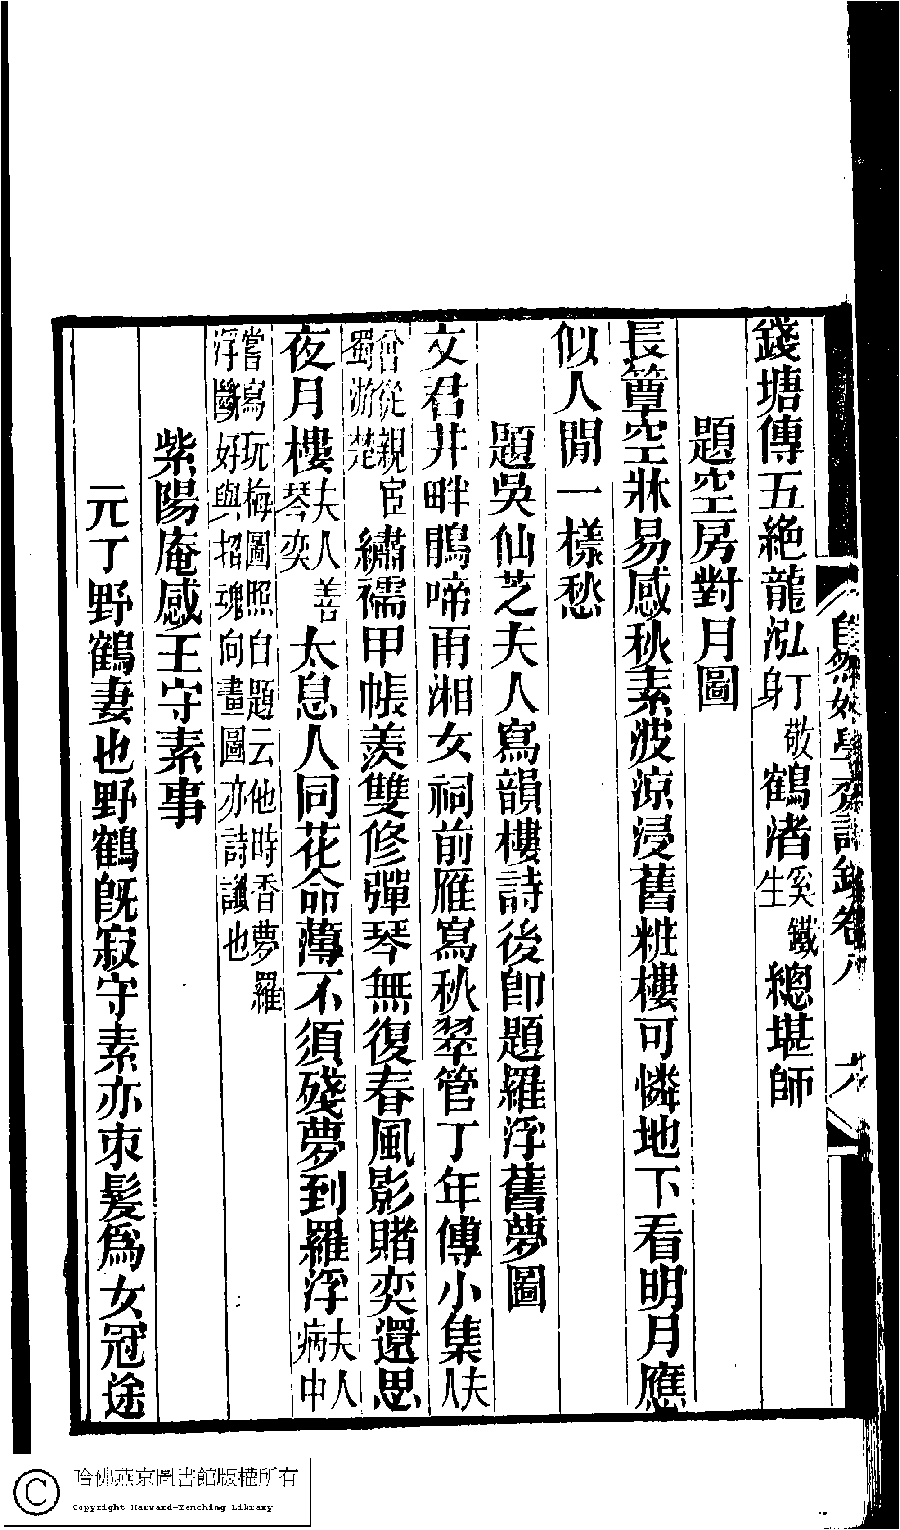 錢塘傳五絕龍泓丁敬身鶴渚奚鐵生總堪師
題空房對月圖
長簟空牀易感秋素波涼浸舊粧樓可憐地下看明月應
似人閒一樣愁
題吳仙芝夫人寫韻樓詩後卽題羅浮舊夢圖
文君井畔鵑啼雨湘女祠前雁寫秋翠管丁年傳小集夫人
曾從親宦蜀游楚繡襦甲帳羨雙修彈琴無復春風影賭奕還思
夜月樓夫人善琴奕太息人同花命薄不須殘夢到羅浮夫人病中
嘗寫玩梅圖照自題云他時香夢羅浮斷好與招魂向畫圖亦詩讖也
紫陽庵感王守素事
元丁野鶴妻也野鶴旣寂守素亦朿髮爲女冠途
自然好學齋詩鈔卷八
哈佛燕京圖書館版權所有
Copyright Harvard-Yenching Library